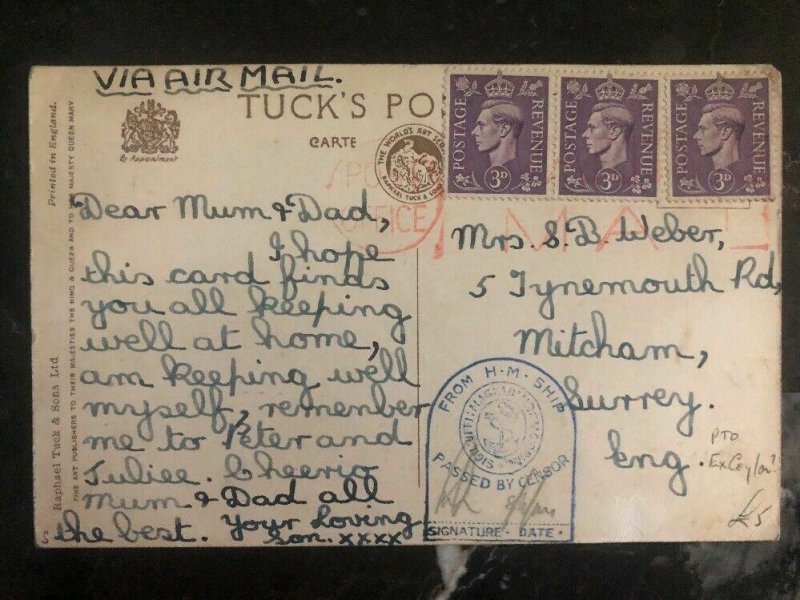 VIA AIR MAIL.
TUCK'S PO
CARTE
By Appointment
Printed in England.
FINE ART PUBLISHERS TO THEIR MAJESTIES THE KING & QUEEN AND TO HER MAJESTY QUEEN MARY
Raphael Tuck & Sons Ltd
THE WORLD'S ART SER
RAPHAEL TUCK & SONS
POSTAGE REVENUE 3D
POSTAGE REVENUE 3D
POSTAGE REVENUE 3D
OFFICE
MAIL
Dear Mum & Dad,
I hope
this card finds
you all keeping
well at home,
am keeping well
myself, remember
me to Peter and
Juliee. Cheerio
Mum & Dad all
the best. Your Loving
Son. xxxx
Mrs S.B. Weber,
5 Tynemouth Rd,
Mitcham,
Surrey.
Eng.
PTO
Ex Ceylon!
£5
FROM H·M·SHIP
PASSED BY CENSOR
SIGNATURE - DATE